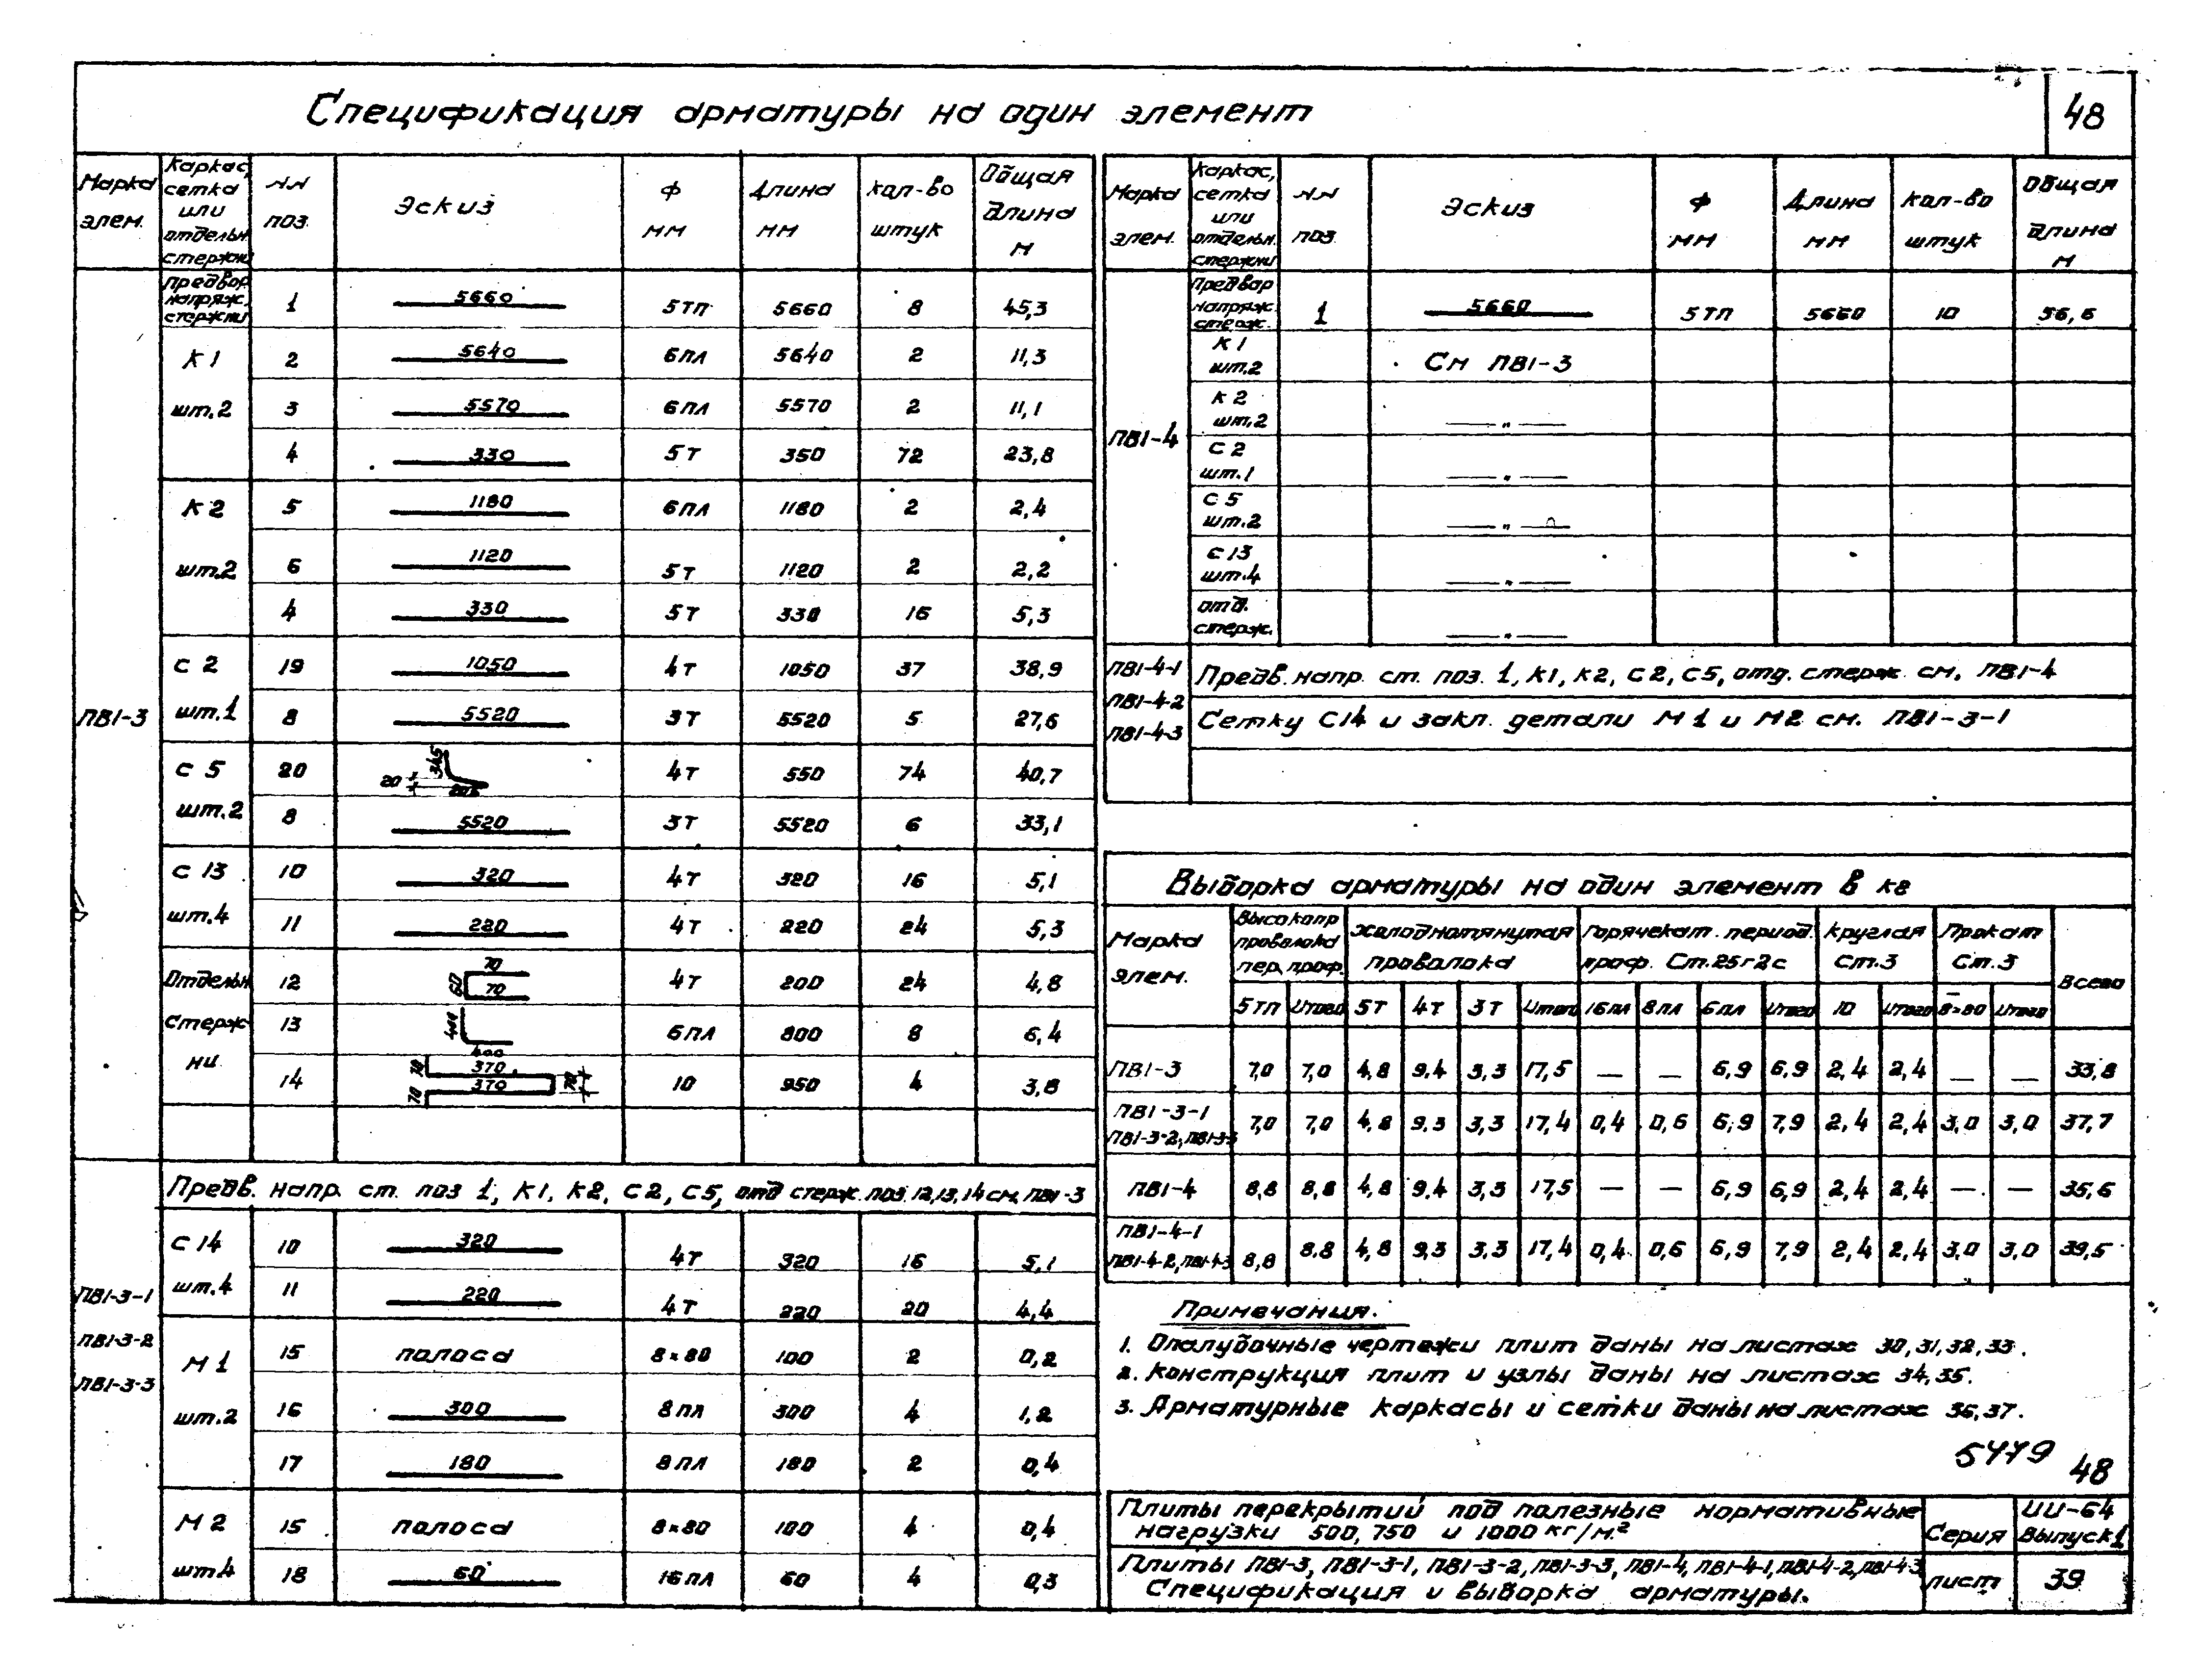 Спецификация арматуры на один элемент
48
Марка элем. | Каркас, сетка или отдельн. стержни | №№ поз. | Эскиз | Ф мм | Длина мм | кол-во штук | Общая длина м
ПВ1-3
Предвар. напряж. стержни | 1 | 5660 | 5ТП | 5660 | 8 | 45,3
К1 шт.2 | 2 | 5640 | 6ПЛ | 5640 | 2 | 11,3
3 | 5570 | 6ПЛ | 5570 | 2 | 11,1
4 | 330 | 5Т | 350 | 72 | 23,8
К2 шт.2 | 5 | 1180 | 6ПЛ | 1180 | 2 | 2,4
6 | 1120 | 5Т | 1120 | 2 | 2,2
4 | 330 | 5Т | 330 | 16 | 5,3
С2 шт.1 | 19 | 1050 | 4Т | 1050 | 37 | 38,9
8 | 5520 | 3Т | 5520 | 5 | 27,6
С5 шт.2 | 20 | 345 20 205 | 4Т | 550 | 74 | 40,7
8 | 5520 | 3Т | 5520 | 6 | 33,1
С13 шт.4 | 10 | 320 | 4Т | 320 | 16 | 5,1
11 | 220 | 4Т | 220 | 24 | 5,3
Отдельн. Стержни | 12 | 70 60 70 | 4Т | 200 | 24 | 4,8
13 | 400 400 | 6ПЛ | 800 | 8 | 6,4
14 | 70 370 370 70 70 | 10 | 950 | 4 | 3,8
ПВ1-3-1
ПВ1-3-2
ПВ1-3-3
Предв. напр. ст. поз 1, К1, К2, С2, С5, отд стерж. поз. 12,13,14 см. ПВ1-3
С14 шт.4 | 10 | 320 | 4Т | 320 | 16 | 5,1
11 | 220 | 4Т | 220 | 20 | 4,4
М1 шт.2 | 15 | полоса | 8×80 | 100 | 2 | 0,2
16 | 300 | 8ПЛ | 300 | 4 | 1,2
17 | 180 | 8ПЛ | 180 | 2 | 0,4
М2 шт.4 | 15 | полоса | 8×80 | 100 | 4 | 0,4
18 | 60 | 16ПЛ | 60 | 4 | 0,3
Марка элем. | Каркас, сетка или отдельн. стержни | №№ поз. | Эскиз | Ф мм | Длина мм | кол-во штук | Общая длина м
ПВ1-4
Предвар напряж. стерж. | 1 | 5660 | 5ТП | 5660 | 10 | 56,6
К1 шт.2 | См ПВ1-3
К2 шт.2 | — " —
С2 шт.1 | — " —
С5 шт.2 | — " —
С13 шт.4 | — " —
отд. стерж. | — " —
ПВ1-4-1
ПВ1-4-2
ПВ1-4-3
Предв. напр. ст. поз. 1, К1, К2, С2, С5, отд. стерж. см. ПВ1-4
Сетку С14 и закл. детали М1 и М2 см. ПВ1-3-1
Выборка арматуры на один элемент в кг
Марка элем. | Высокопр проволока пер. проф. | Холоднотянутая проволока | Горячекат. период. проф. Ст.25г2с | Круглая Ст.3 | Прокат Ст.3 | Всего
5ТП | Итого | 5Т | 4Т | 3Т | Итого | 16ПЛ | 8ПЛ | 6ПЛ | Итого | 10 | Итого | 8×80 | Итого
ПВ1-3 | 7,0 | 7,0 | 4,8 | 9,4 | 3,3 | 17,5 | — | — | 6,9 | 6,9 | 2,4 | 2,4 | — | — | 33,8
ПВ1-3-1 ПВ1-3-2, ПВ1-3-3 | 7,0 | 7,0 | 4,8 | 9,3 | 3,3 | 17,4 | 0,4 | 0,6 | 6,9 | 7,9 | 2,4 | 2,4 | 3,0 | 3,0 | 37,7
ПВ1-4 | 8,8 | 8,8 | 4,8 | 9,4 | 3,3 | 17,5 | — | — | 6,9 | 6,9 | 2,4 | 2,4 | — | — | 35,6
ПВ1-4-1 ПВ1-4-2, ПВ1-4-3 | 8,8 | 8,8 | 4,8 | 9,3 | 3,3 | 17,4 | 0,4 | 0,6 | 6,9 | 7,9 | 2,4 | 2,4 | 3,0 | 3,0 | 39,5
Примечания.
1. Опалубочные чертежи плит даны на листах 30,31,32,33.
2. Конструкция плит и узлы даны на листах 34,35.
3. Арматурные каркасы и сетки даны на листах 36,37.
5479 48
Плиты перекрытий под полезные нормативные
нагрузки 500, 750 и 1000 кг/м²
Серия
ИИ-64
Выпуск 1
Плиты ПВ1-3, ПВ1-3-1, ПВ1-3-2, ПВ1-3-3, ПВ1-4, ПВ1-4-1, ПВ1-4-2, ПВ1-4-3
Спецификация и выборка арматуры.
лист
39